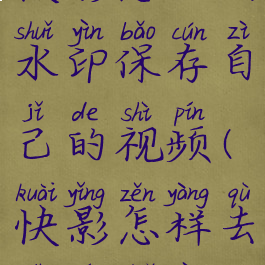 shuǐ yìn bǎo cún zì
水印保存自
jǐ de shì pín
己的视频(
kuài yǐng zěn yàng qù
快影怎样去